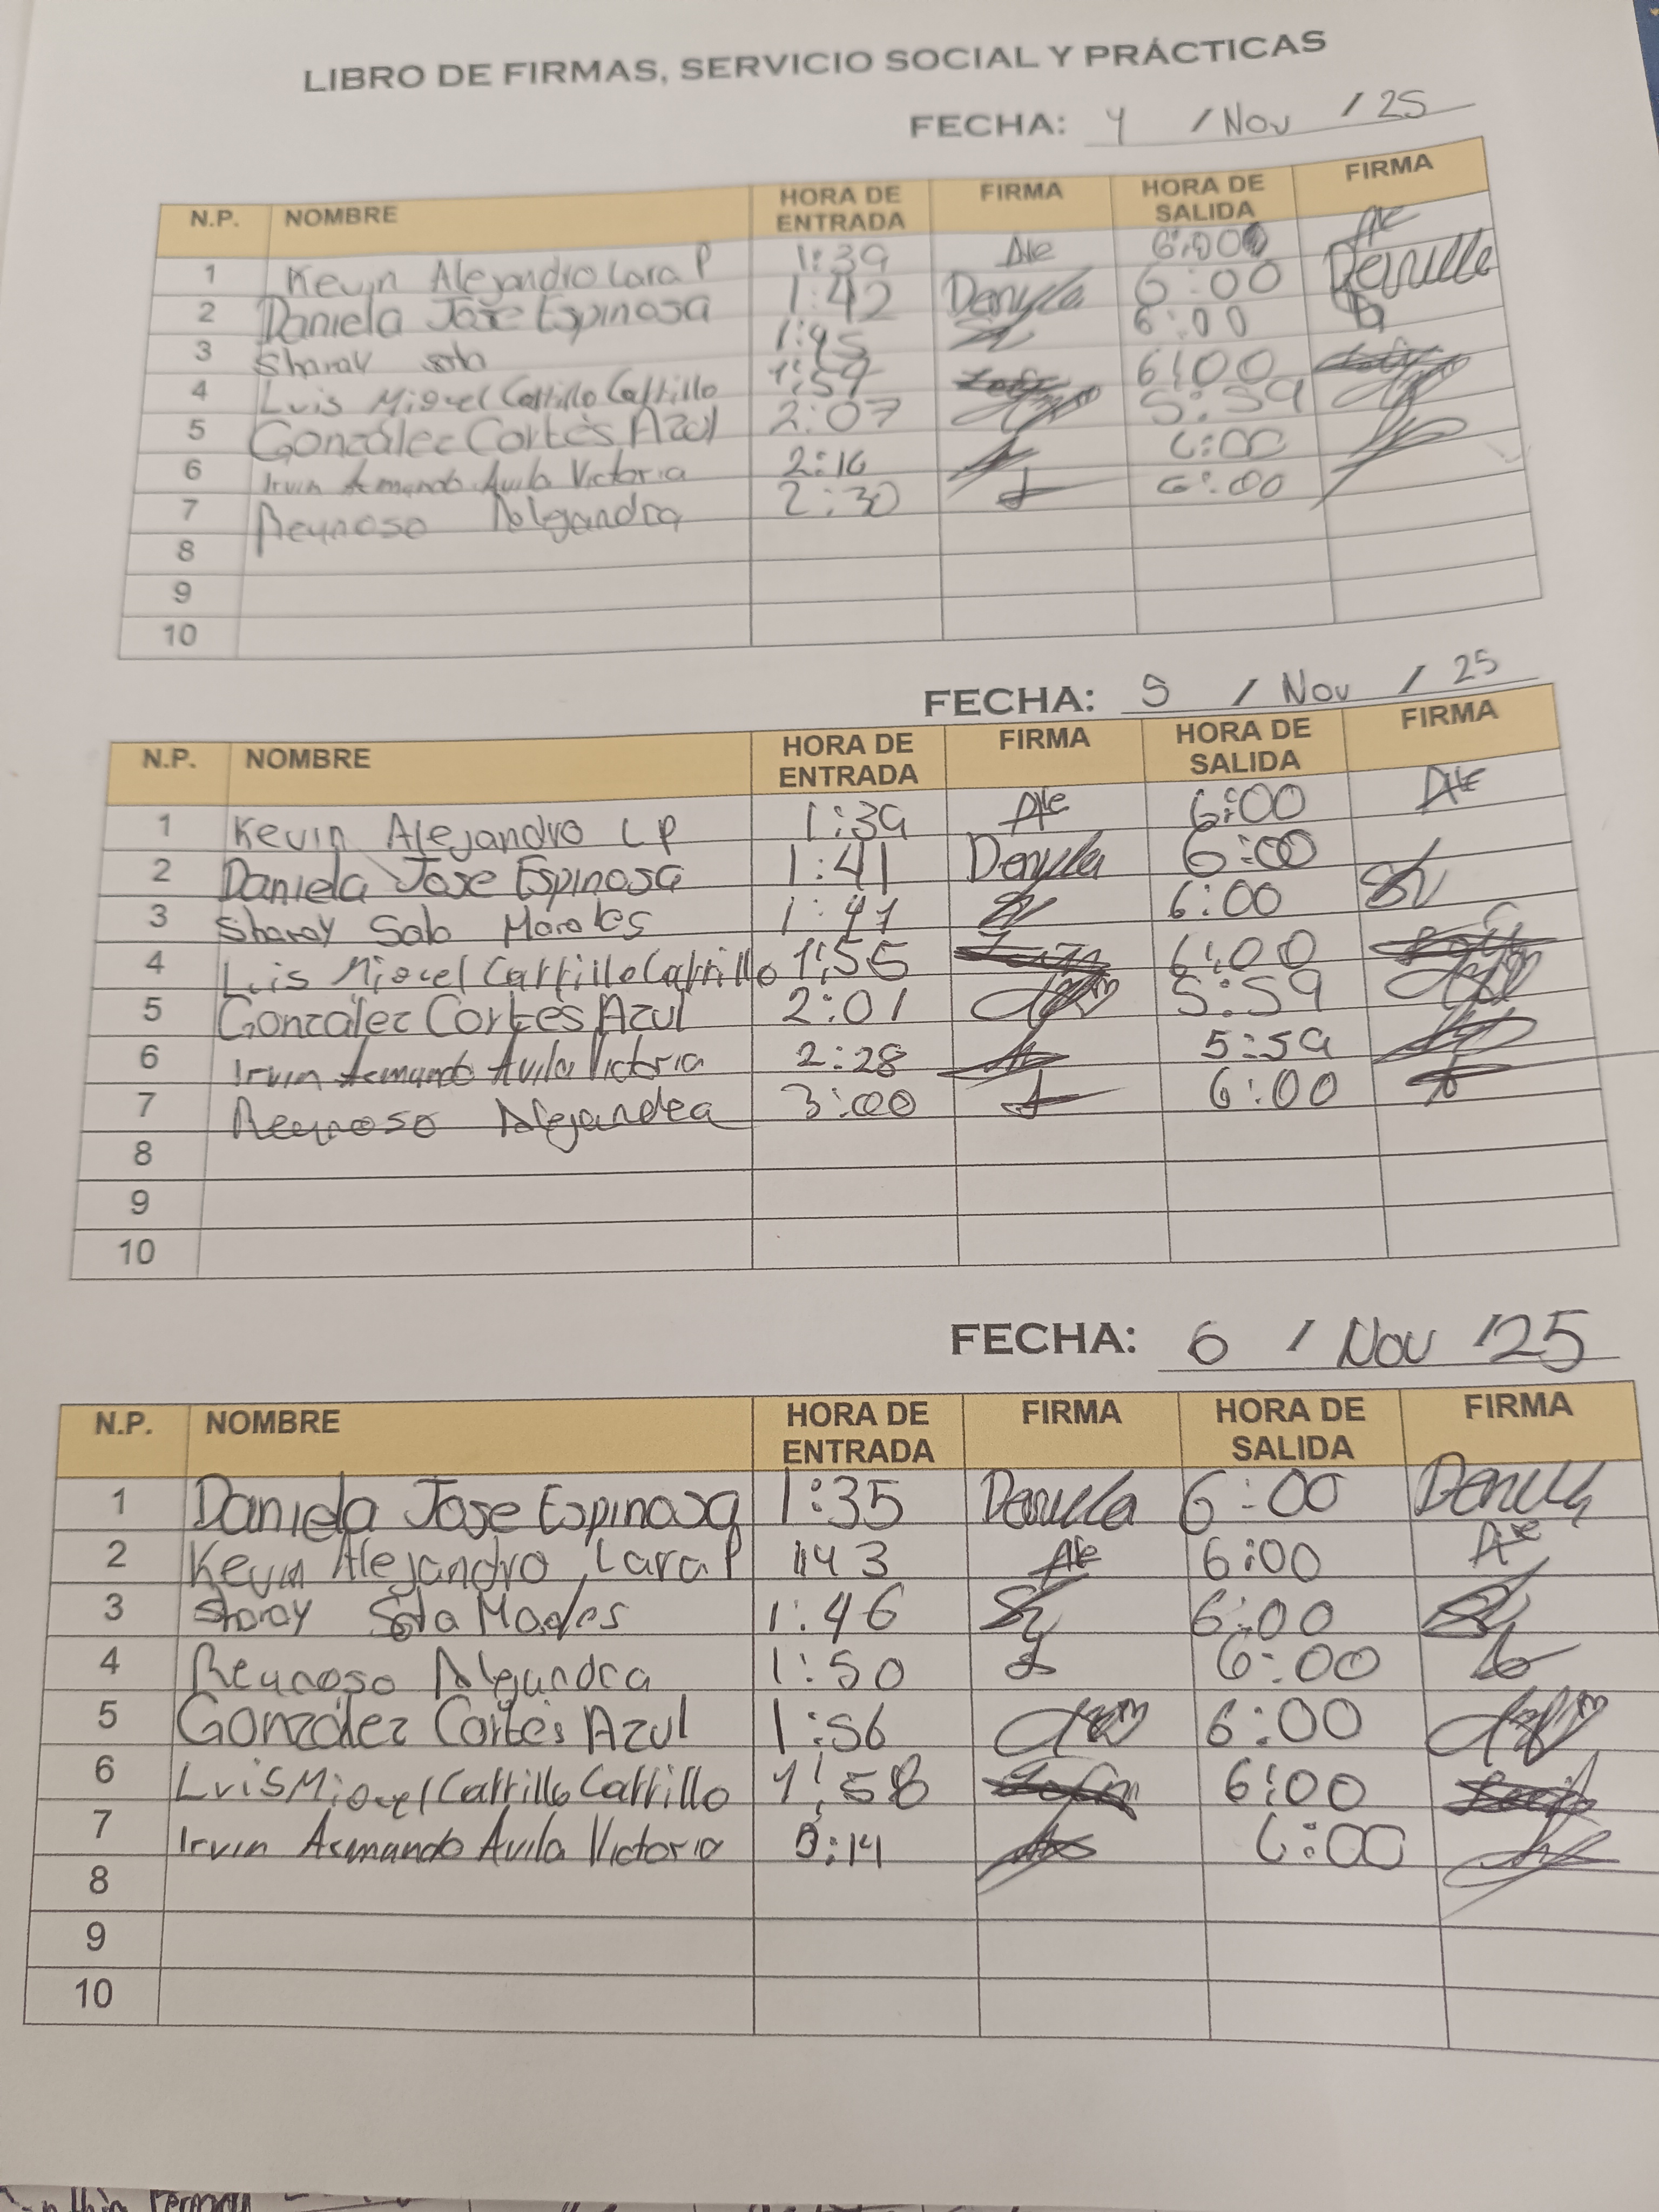 LIBRO DE FIRMAS, SERVICIO SOCIAL Y PRÁCTICAS
FECHA: 4 / Nov / 25
N.P. NOMBRE HORA DE ENTRADA FIRMA HORA DE SALIDA FIRMA
1 Kevin Alejandro Lara P 1:39 Ale 6:00 Ale
2 Daniela Jose Espinosa 1:42 6:00
3 Sharay soto 1:45 6:00
4 Luis Miguel Carrillo Carrillo 1:59 6:00
5 González Cortés Azul 2:07 5:59
6 Irvin Armando Avila Victoria 2:16 6:00
7 Reynoso Alejandra 2:30 6:00
8
9
10
FECHA: 5 / Nov / 25
N.P. NOMBRE HORA DE ENTRADA FIRMA HORA DE SALIDA FIRMA
1 Kevin Alejandro L P 1:39 Ale 6:00 Ale
2 Daniela Jose Espinosa 1:41 6:00
3 Sharay Soto Morales 1:47 6:00
4 Luis Miguel Carrillo Carrillo 1:56 6:00
5 González Cortés Azul 2:01 5:59
6 Irvin Armando Avila Victoria 2:28 5:59
7 Reynoso Alejandra 3:00 6:00
8
9
10
FECHA: 6 / Nov /25
N.P. NOMBRE HORA DE ENTRADA FIRMA HORA DE SALIDA FIRMA
1 Daniela Jose Espinosa 1:35 6:00
2 Kevin Alejandro Lara P 1:43 Ale 6:00 Ale
3 Sharay Soto Morales 1:46 6:00
4 Reynoso Alejandra 1:50 6:00
5 González Cortés Azul 1:56 6:00
6 Luis Miguel Carrillo Carrillo 1:58 6:00
7 Irvin Armando Avila Victoria 6:00
8
9
10